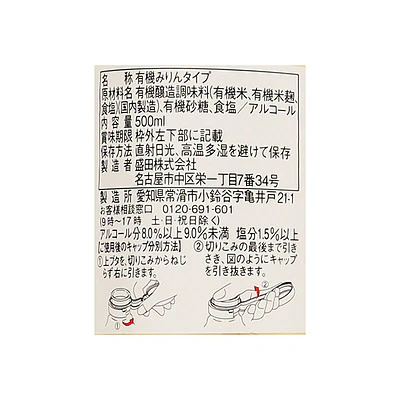 名 称 有機みりんタイプ
原材料名 有機醸造調味料(有機米、有機米麹、
食塩)(国内製造)、有機砂糖、食塩／アルコール
内容量 500ml
賞味期限 枠外左下部に記載
保存方法 直射日光、高温多湿を避けて保存
製造者 盛田株式会社
名古屋市中区栄一丁目7番34号
製造所 愛知県常滑市小鈴谷字亀井戸21-1
お客様相談窓口 0120-691-601
(9時〜17時 土・日・祝日除く)
アルコール分8.0%以上9.0%未満 塩分1.5%以上
[ご使用後のキャップ分別方法]
①上ブタを、切りこみからねじらず右に引きます。
②切りこみの最後まで引きさき、図のようにキャップを引き抜きます。
①
②